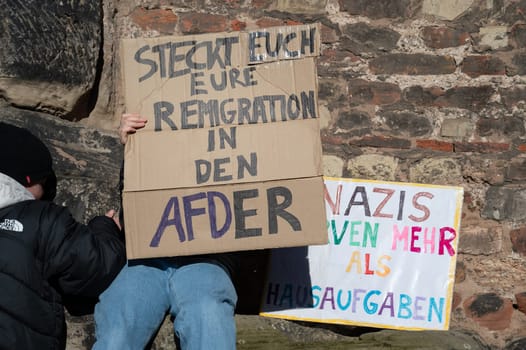 STECKT EUCH
EURE
REMIGRATION
IN
DEN
AFDER
NAZIS
MEHR
ALS
HAUSAUFGABEN
THE
NORTH
FACE